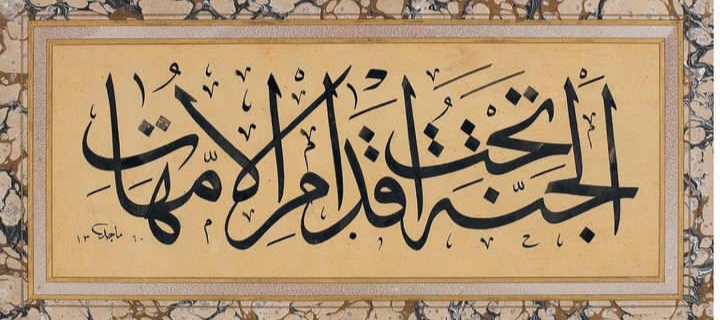 الجنة تحت اقدام الامهات
ماجد ١٣٦٠